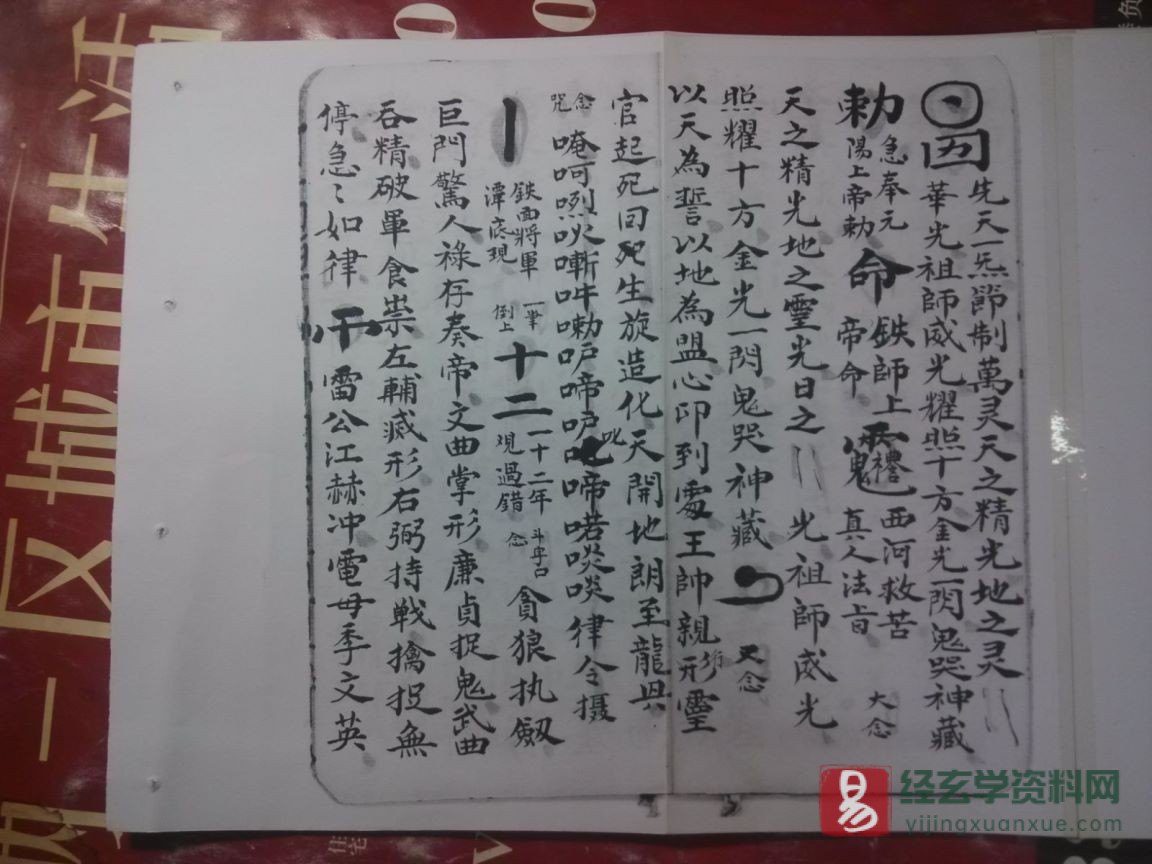 先天一炁節制萬灵天之精光地之灵
華光祖師威光耀照十方金光一閃鬼哭神藏
勅
急奉元
陽上帝勅
命
鉄師上
帝命
西河救苦
真人法旨
大念
天之精光地之靈光日之
光祖師威光
照耀十方金光一閃鬼哭神藏
又念
以天為誓以地為盟心印到處王帥親形靈
官起死回死生旋造化天開地朗至龍興
念
咒
唵呵
律令摄
鉄面將軍
潭底現
一筆
倒上
十二
一十二年
過錯
念
貪狼执劔
巨門驚人祿存奏帝文曲掌形廉貞捉鬼武曲
吞精破軍食祟左輔滅形右弼持戦擒捉無
停急〻如律
雷公江赫冲電母季文英
易
经玄学资料网
yijingxuanxue.com
区城市生活